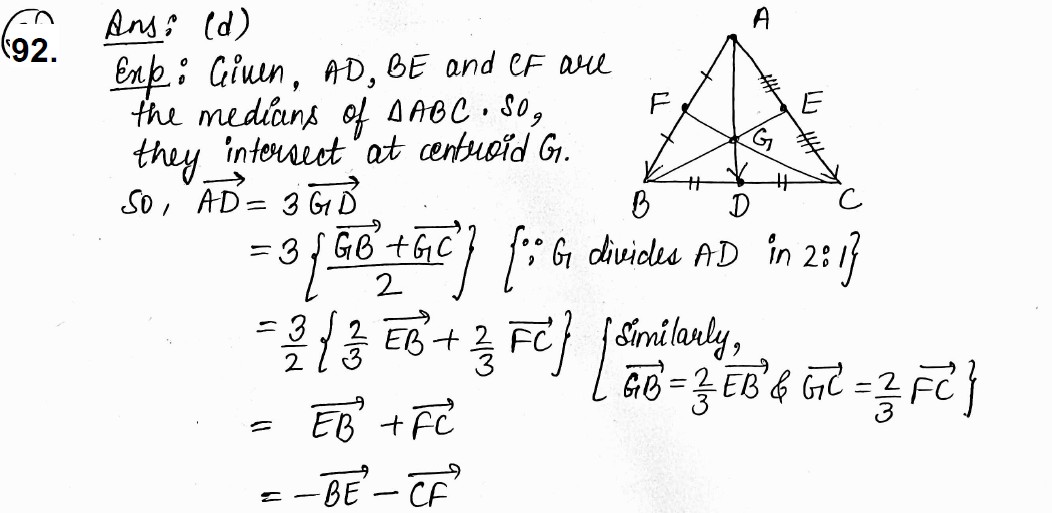 92.
Ans: (d)
Exp: Given, AD, BE and CF are
the medians of ΔABC. So,
they intersect at centroid G.
So, \overrightarrow{AD} = 3 \overrightarrow{GD}
= 3 { (\overrightarrow{GB} + \overrightarrow{GC}) / 2 } {∵ G divides AD in 2:1}
= 3/2 { 2/3 \overrightarrow{EB} + 2/3 \overrightarrow{FC} } { Similarly,
\overrightarrow{GB} = 2/3 \overrightarrow{EB} & \overrightarrow{GC} = 2/3 \overrightarrow{FC} }
= \overrightarrow{EB} + \overrightarrow{FC}
= -\overrightarrow{BE} - \overrightarrow{CF}
A
F
E
G
B
D
C